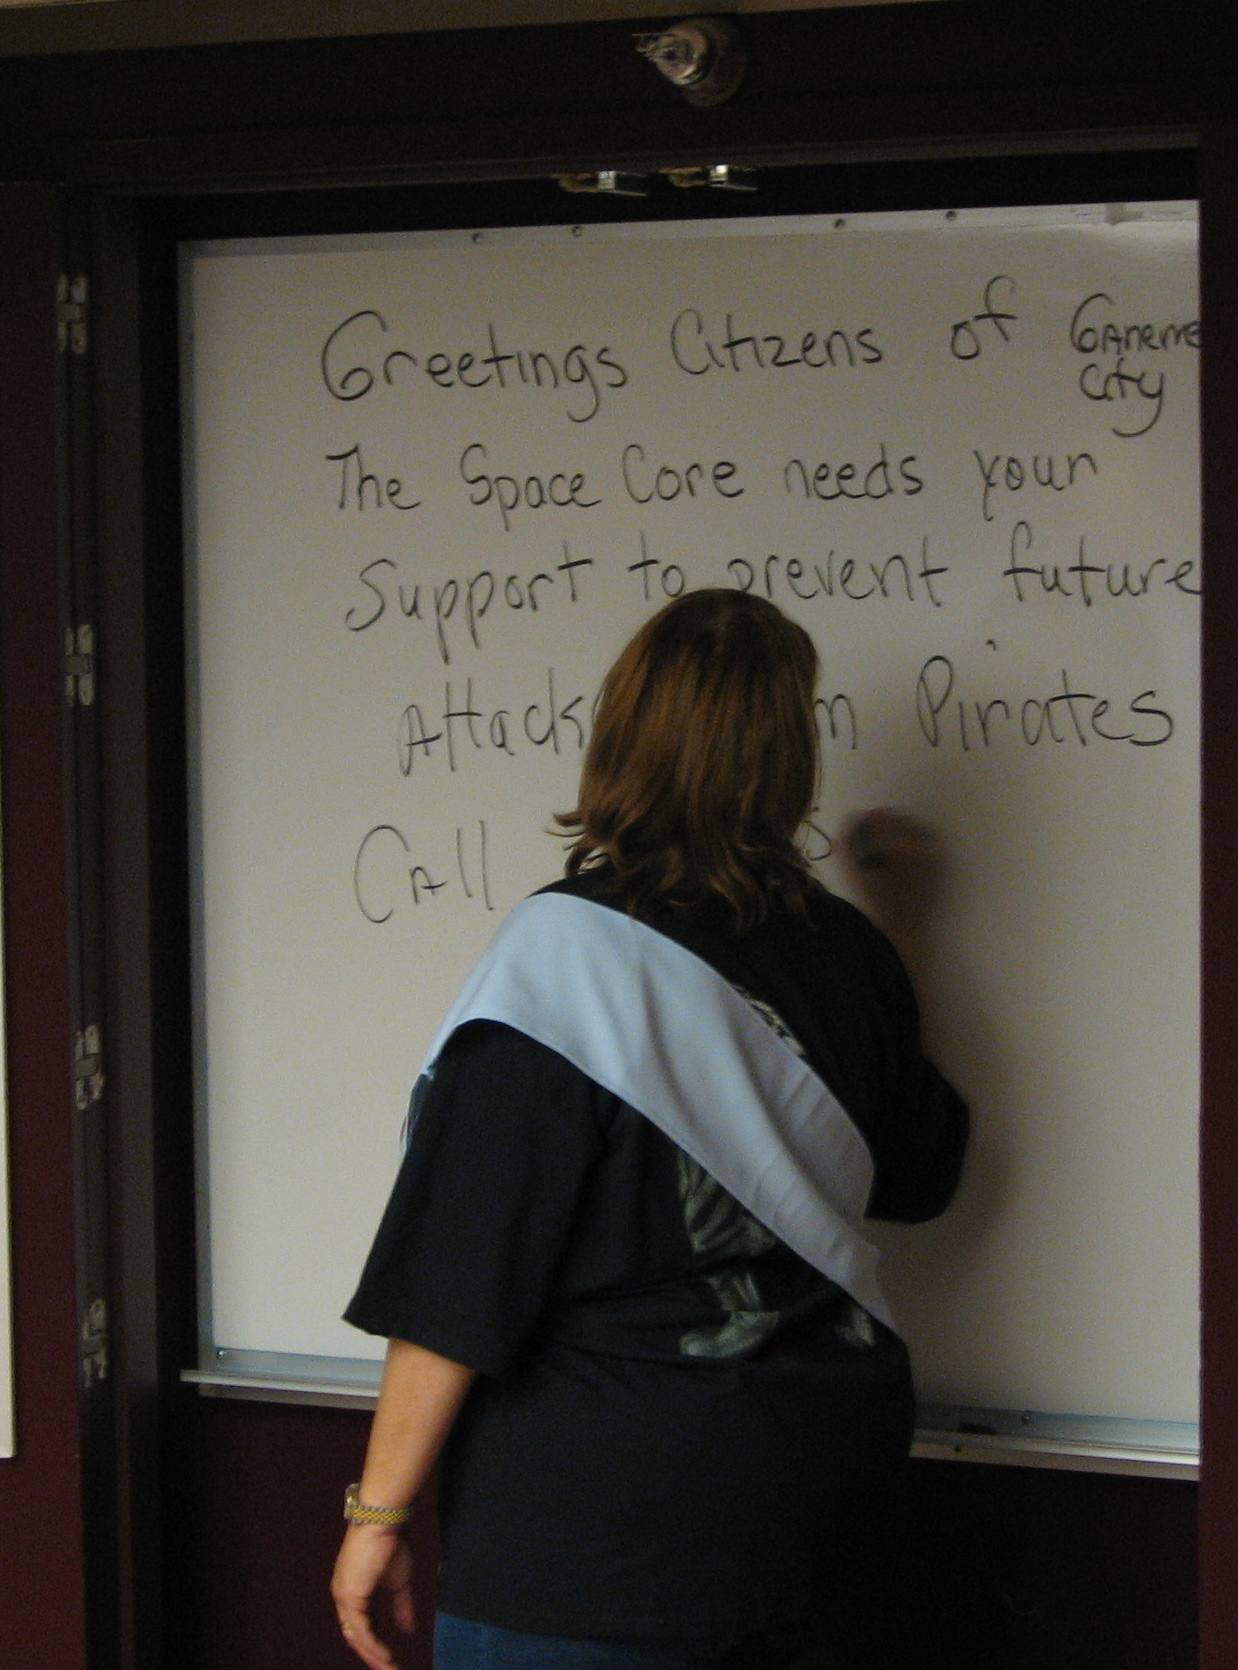 Greetings Citizens of
City
The Space Core needs your
Support to prevent future
Attack Pirates
Call